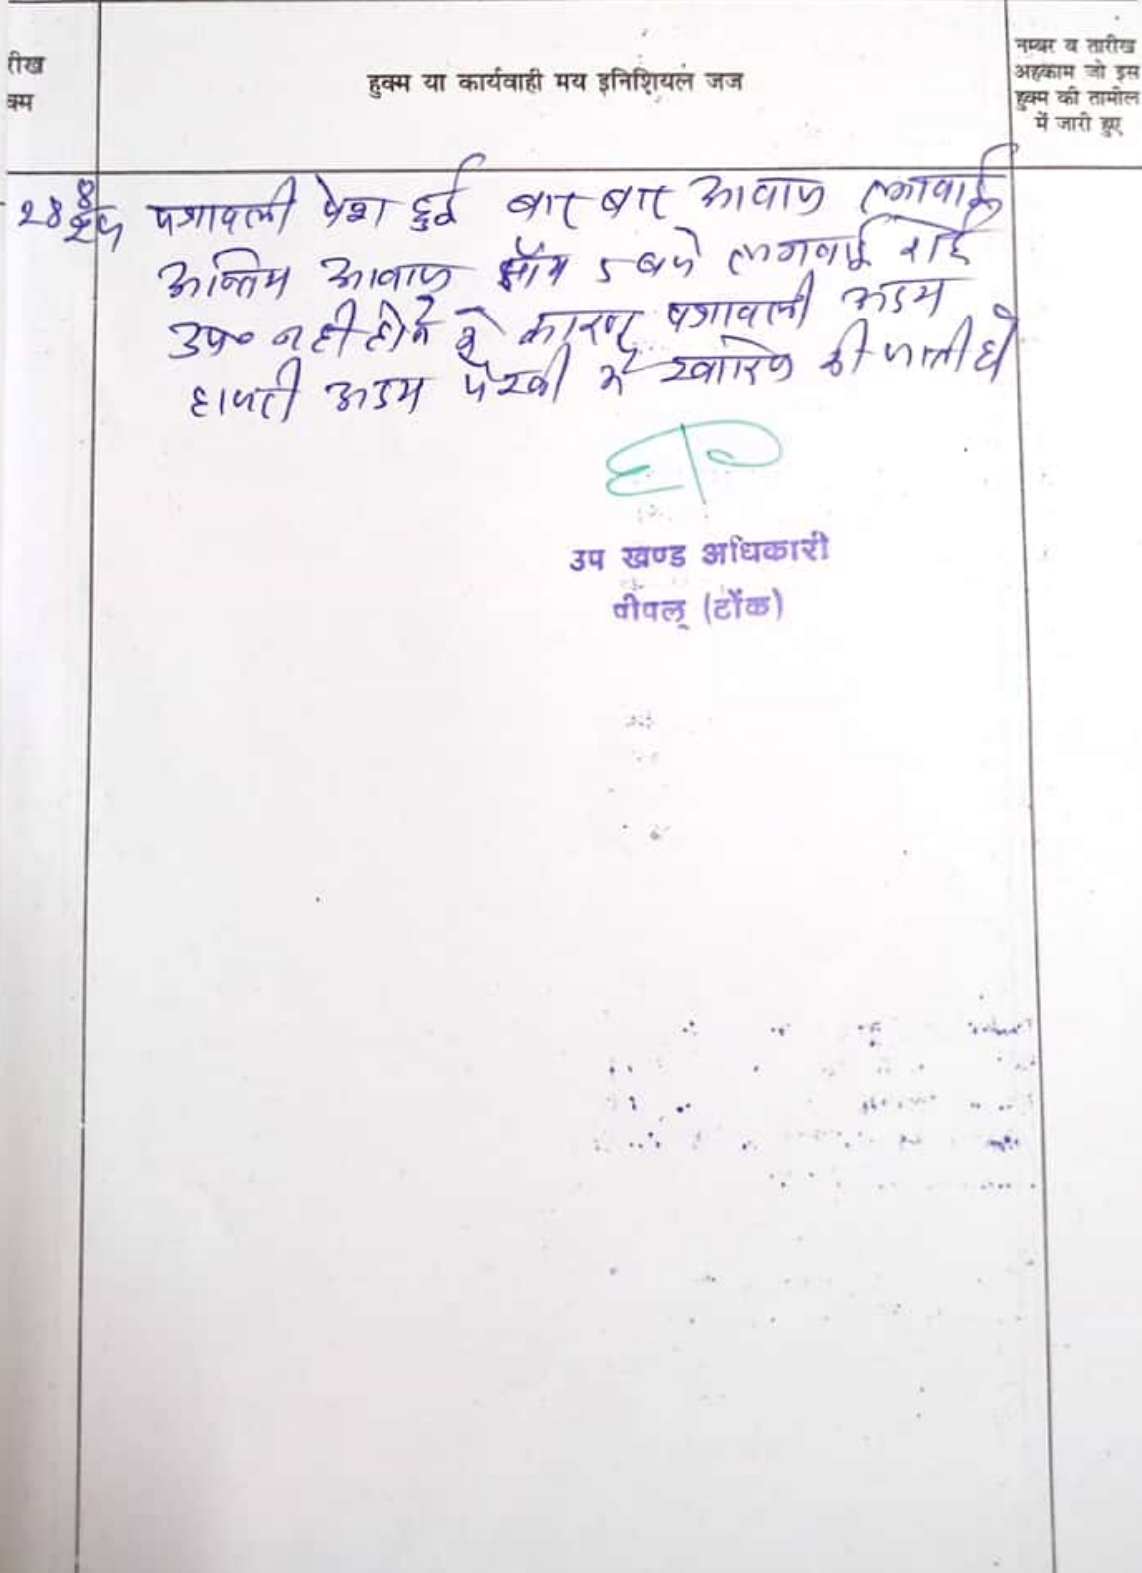 रीख
क्म
हुक्म या कार्यवाही मय इनिशियल जज
नम्बर व तारीख
अहकाम जो इस
हुक्म की तामील
में जारी हुए
28 8
पत्रावली पेश हुई बार बार आवाज लगवाई
अन्तिम आवाज सॉय 5 बजे लगवाई गई
उप० नही होने के कारण पत्रावली अदम
हाजरी अदम पैरवी में खारिज की जाती है
उप खण्ड अधिकारी
पीपलू (टोंक)